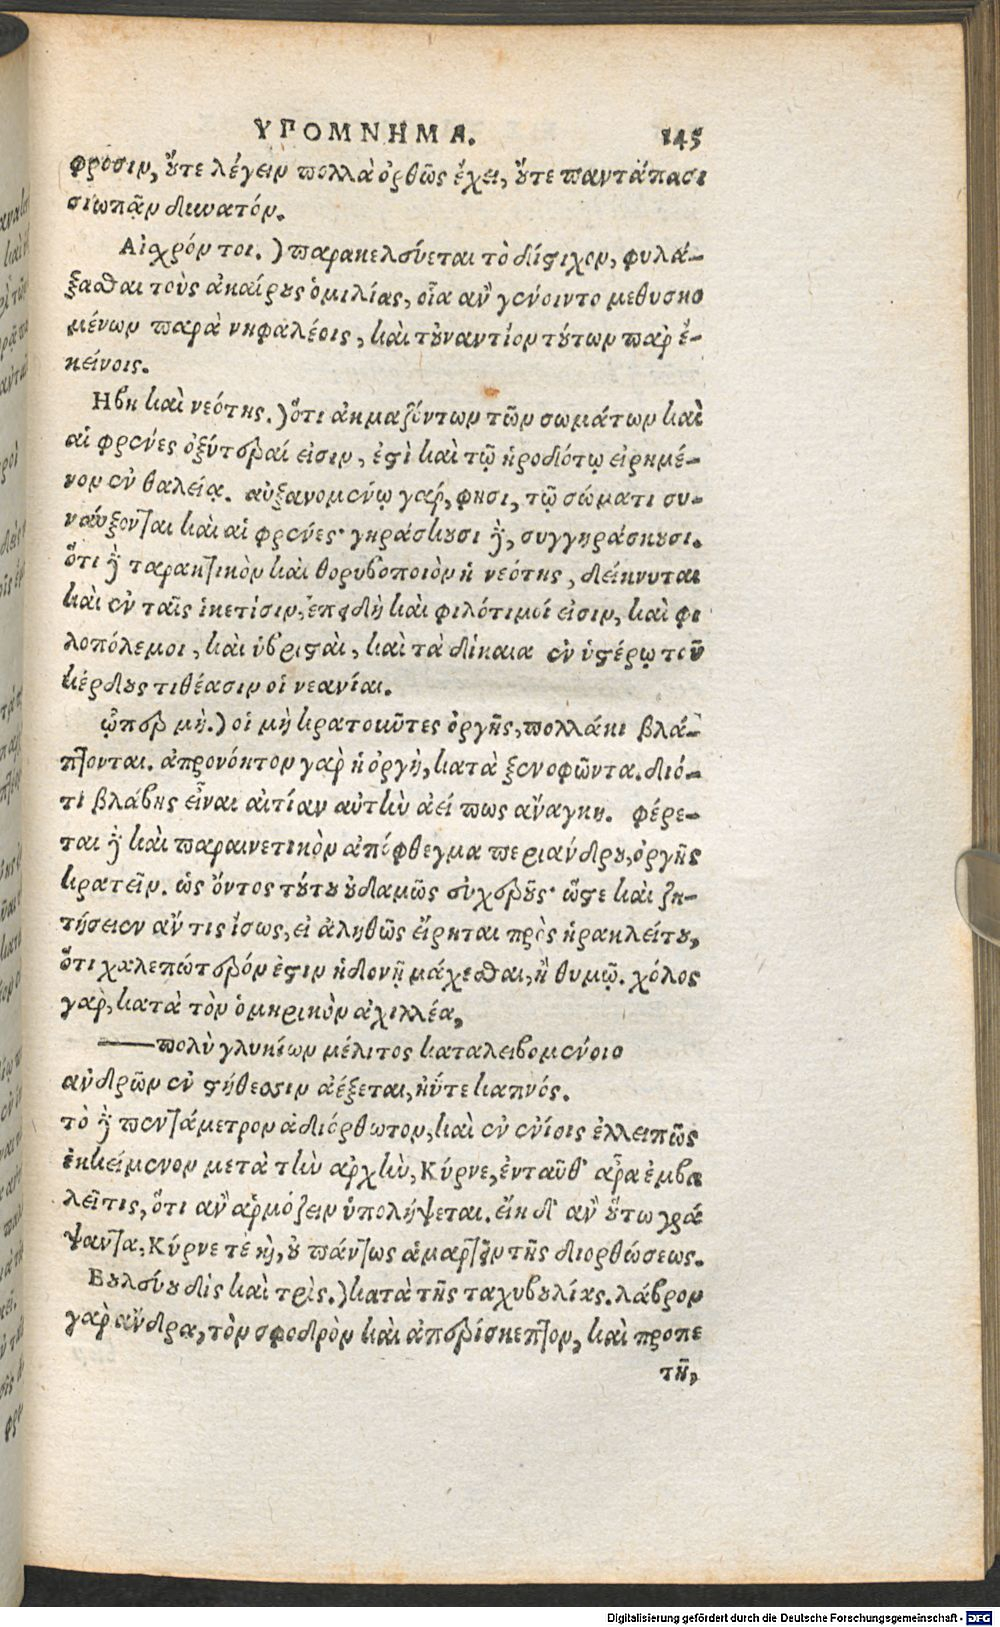 ΥΠΟΜΝΗΜΑ. 145
φροσιν, οὔτε λέγειν πολλὰ ὀρθῶς ἔχει, οὔτε παντάπασι
σιωπᾷν δυνατόν.
Αἰσχρόν τοι.) παρακελεύεται τὸ δίστιχον, φυλά-
ξασθαι τοὺς ἀκαίρους ὁμιλίας, οἷα ἂν γένοιντο μεθυσκο
μένων παρὰ νηφαλέοις, καὶ τοὐναντίον τούτων παρ' ἐ-
κείνοις.
Ηβη καὶ νεότης.) ὅτι ἀκμαζόντων τῶν σωμάτων καὶ
αἱ φρένες ὀξύτεραί εἰσιν, ἐστὶ καὶ τῷ ἡροδότῳ εἰρημέ-
νον ἐν θαλείᾳ. αὐξανομένῳ γάρ, φησι, τῷ σώματι συ-
ναύξονται καὶ αἱ φρένες· γηράσκουσι δὲ, συγγηράσκουσι.
ὅτι δὲ ταρακτικὸν καὶ θορυβοποιὸν ἡ νεότης, δείκνυται
καὶ ἐν ταῖς ἱκετίσιν, ἐπειδὴ καὶ φιλότιμοί εἰσιν, καὶ φι
λοπόλεμοι, καὶ ὑβρισταὶ, καὶ τὰ δίκαια ἐν ὑστέρῳ τοῦ
κέρδους τιθέασιν οἱ νεανίαι.
ᾧπερ μὴ.) οἱ μὴ κρατοῦντες ὀργῆς, πολλάκι βλά-
πτονται. ἀπρονόητον γὰρ ἡ ὀργὴ, κατὰ ξενοφῶντα. διό-
τι βλάβης εἶναι αἰτίαν αὐτὴν ἀεί πως ἀνάγκη. φέρε-
ται δὲ καὶ παραινετικὸν ἀπόφθεγμα περιάνδρου, ὀργῆς
κρατεῖν. ὡς ὄντος τούτου οὐδαμῶς εὐχεροῦς· ὥστε καὶ ζη-
τήσειεν ἄν τις ἴσως, εἰ ἀληθῶς εἴρηται πρὸς ἡρακλείτου,
ὅτι χαλεπώτερόν ἐστιν ἡδονῇ μάχεσθαι, ἢ θυμῷ. χόλος
γὰρ, κατὰ τὸν ὁμηρικὸν ἀχιλλέα,
——πολὺ γλυκίων μέλιτος καταλειβομένοιο
ἀνδρῶν ἐν στήθεσσιν ἀέξεται, ἠΰτε καπνός.
τὸ δὲ πεντάμετρον ἀδιόρθωτον, καὶ ἐν ἐνίοις ἐλλειπῶς
ἐκκείμενον μετὰ τὴν ἀρχὴν, Κύρνε, ἐνταῦθ' ἄρα ἐμβα
λεῖ τις, ὅτι ἂν ἁρμόζειν ὑπολήψεται. εἴη δ' ἂν οὕτω γρά
ψαντα, Κύρνε τὲ καὶ, οὐ πάντως ἁμαρτεῖν τῆς διορθώσεως.
Βουλεύου δὶς καὶ τρὶς.) κατὰ τῆς ταχυβουλίας. λάβρον
γὰρ ἄνδρα, τὸν σφοδρὸν καὶ ἀπερίσκεπτον, καὶ προπε
τῆ,
Digitalisierung gefördert durch die Deutsche Forschungsgemeinschaft - DFG